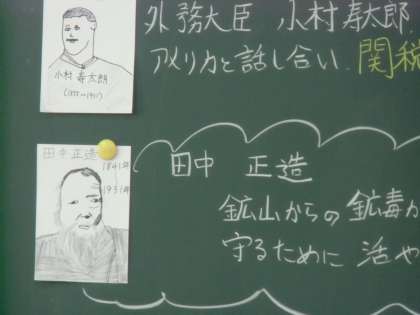 小村寿太朗
(1855〜1911)
外務大臣 小村寿太郎
アメリカと話し合い.関税
田中正造
1841年
1931年
田中 正造
鉱山からの鉱毒か
守るために 活や